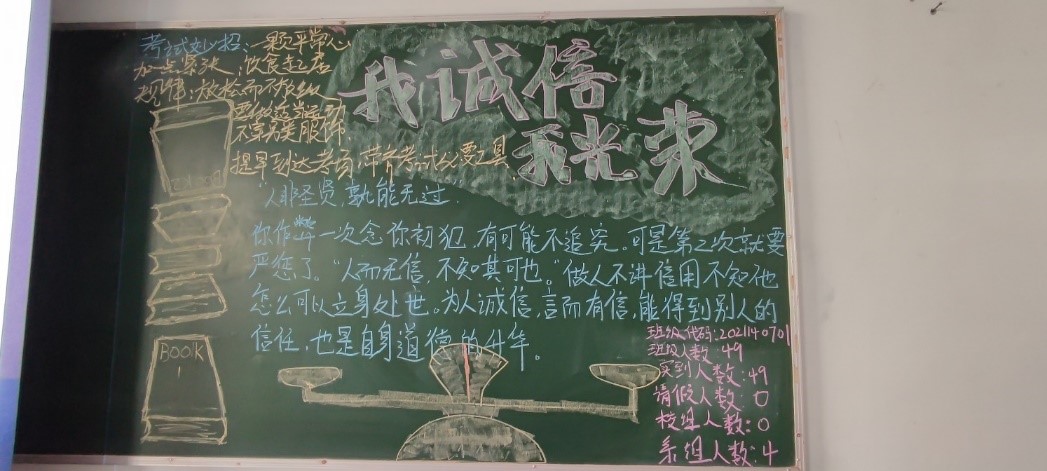 考试妙招：一颗平常心
加一点紧张，饮食起居
规律：放松而不放纵
要做适当运动
不穿另类服饰
提早到达考场，带齐考试必要工具
我诚信
我光荣
"人非圣贤，孰能无过
你作弊一次念你初犯，有可能不追究。可是第二次就要
严惩了。"人而无信，不知其可也。"做人不讲信用不知他
怎么可以立身处世。为人诚信，言而有信，能得到别人的
信任，也是自身道德的升华。
BOOK
班级代码：2021140701
班级人数：49
实到人数：49
请假人数：0
校组人数：0
系组人数：4